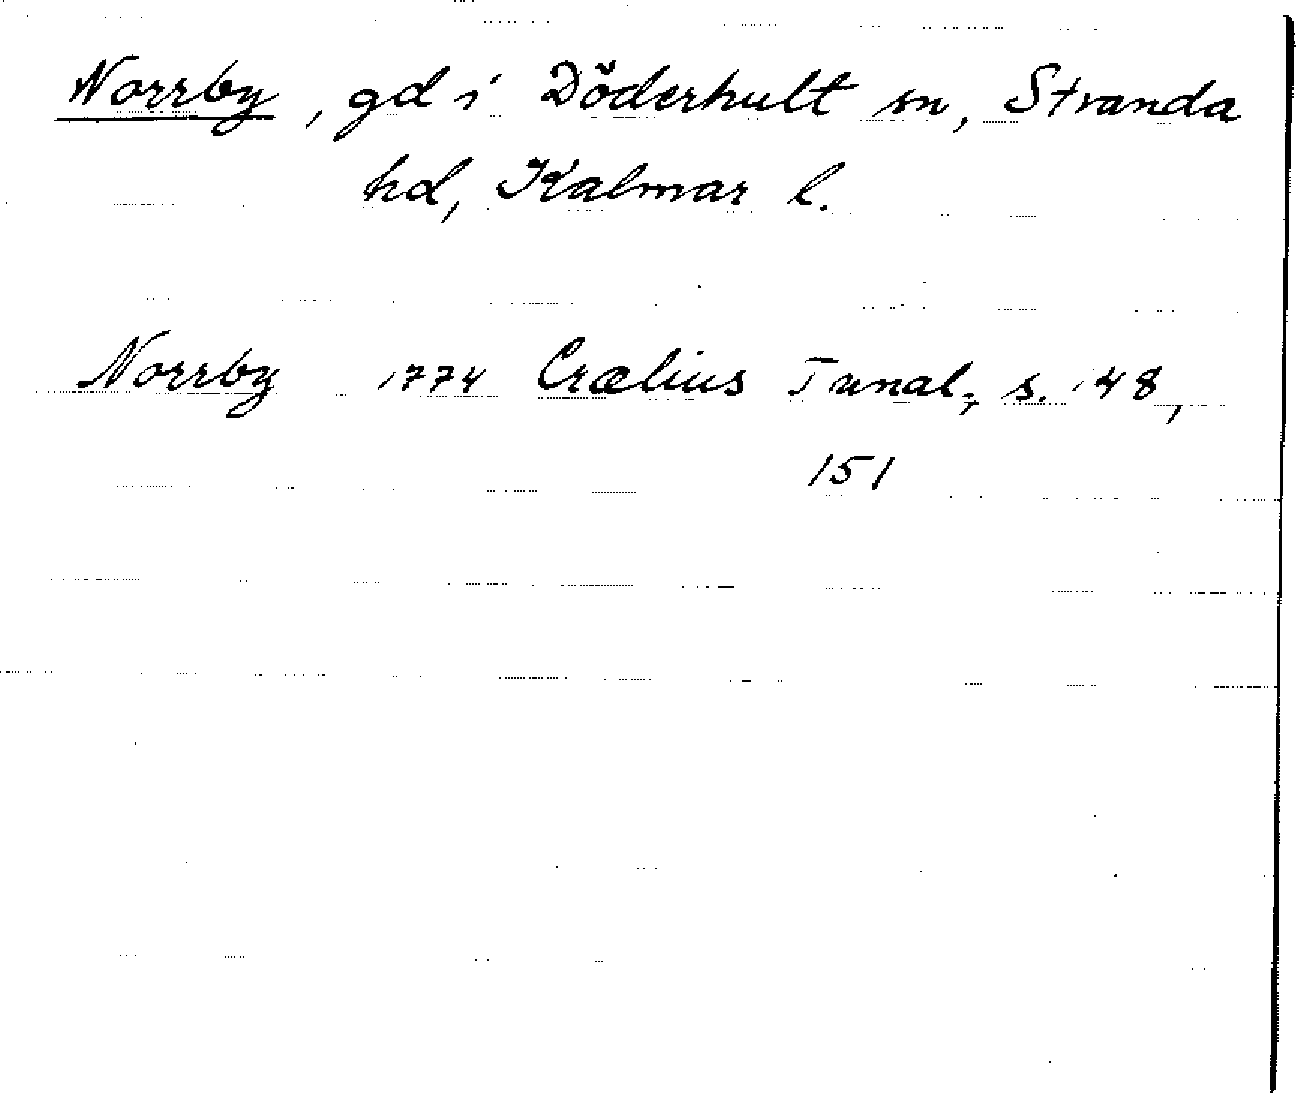 Norrby, gd i Döderhult sn, Stranda
hd, Kalmar l.
Norrby 1774 Crælius Tunal., s. 148,
151